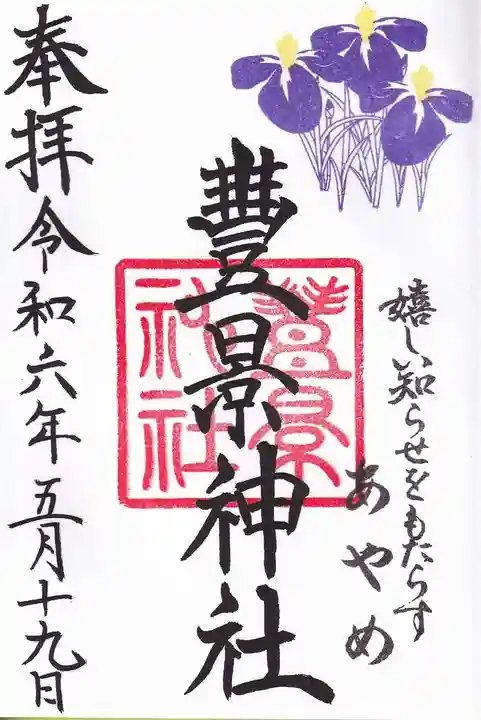 嬉しい知らせをもたらす
あやめ
豊景神社
豊景神社
奉拝 令和六年五月十九日